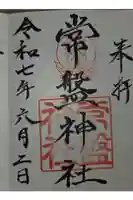 奉拝
常盤神社
令和七年六月二日